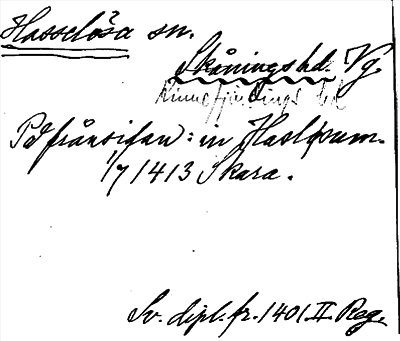 Hasselösa sn.
Skånings hd. Vg.
Kinnefjärdings hd
På frånsidan: in Hasløsum.
1/7 1413 Skara.
Sv. dipl. fr. 1401. II. Reg.